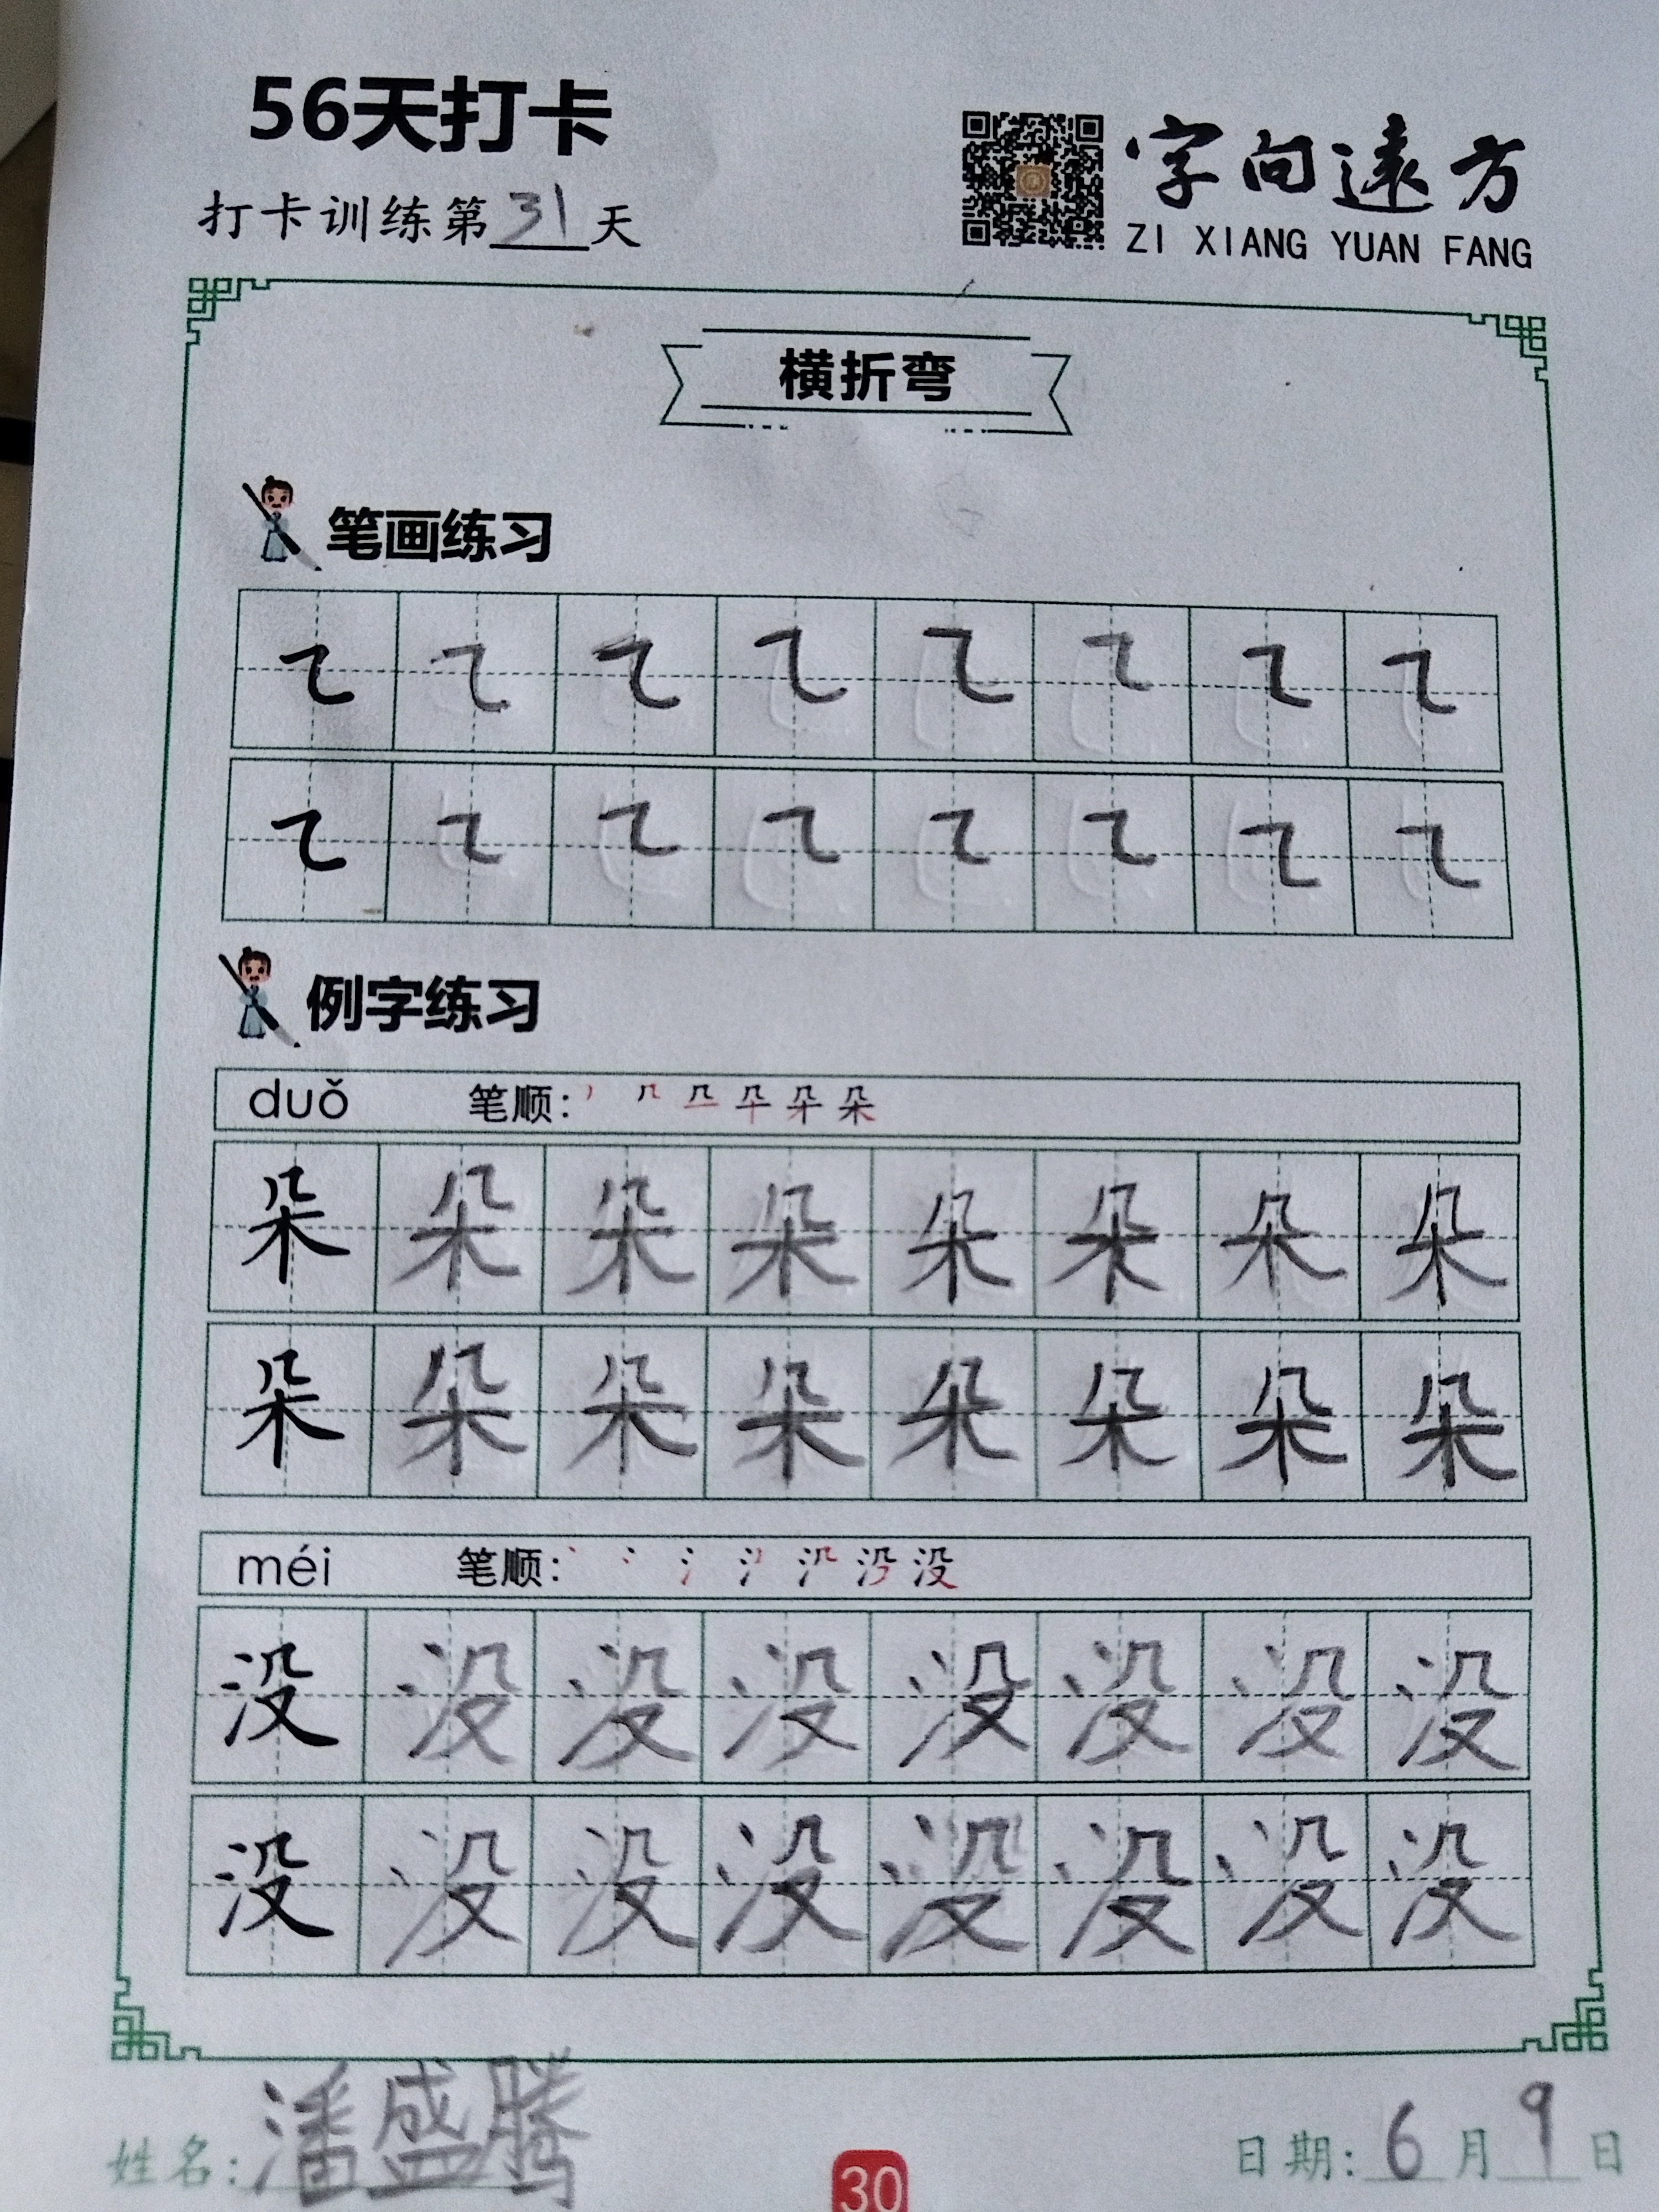 56天打卡
打卡训练第31天
字向遠方
ZI XIANG YUAN FANG
横折弯
笔画练习
㇍ ㇍ ㇍ ㇍ ㇍ ㇍ ㇍ ㇍
㇍ ㇍ ㇍ ㇍ ㇍ ㇍ ㇍ ㇍
例字练习
duǒ 笔顺:
朵 朵 朵 朵 朵 朵 朵 朵
朵 朵 朵 朵 朵 朵 朵 朵
méi 笔顺:
没 没 没 没 没 没 没 没
没 没 没 没 没 没 没 没
姓名:潘盛腾
日期:6月9日
30